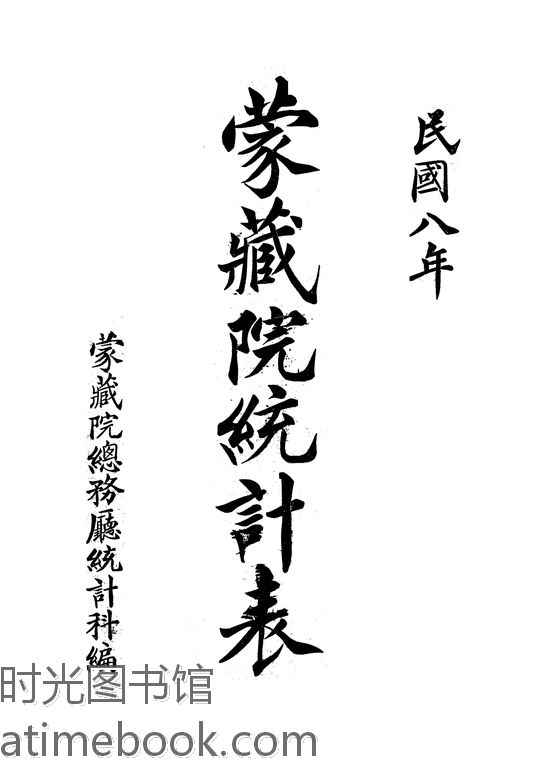 民國八年
蒙藏院統計表
蒙藏院總務廳統計科編
时光图书馆
atimebook.com